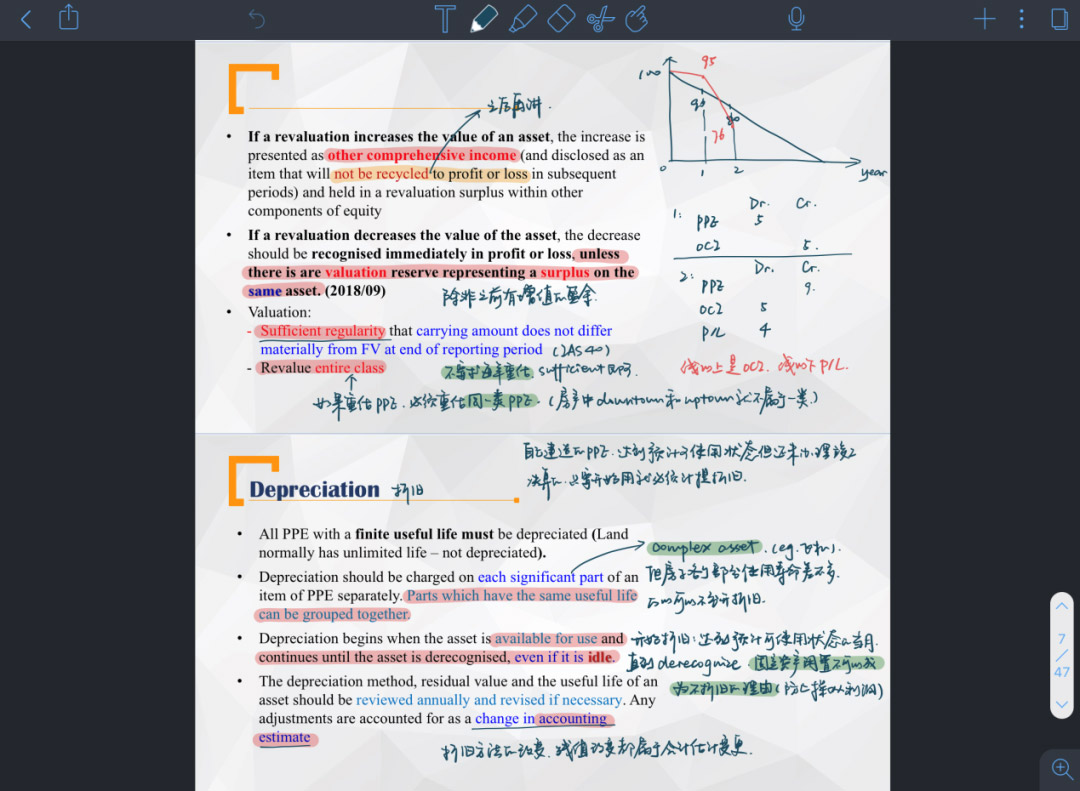 之后再讲.
• If a revaluation increases the value of an asset, the increase is
presented as other comprehensive income (and disclosed as an
item that will not be recycled to profit or loss in subsequent
periods) and held in a revaluation surplus within other
components of equity
• If a revaluation decreases the value of the asset, the decrease
should be recognised immediately in profit or loss, unless
there is are valuation reserve representing a surplus on the
same asset. (2018/09)
除非之前有增值的盈余.
• Valuation:
- Sufficient regularity that carrying amount does not differ
materially from FV at end of reporting period (IAS 40)
- Revalue entire class
不要求每年重估, sufficient 即可.
如果重估PPE, 必须重估同一类PPE. (房产中downtown和uptown就不属于一类.)
100
95
90
80
76
0
1
2
year
Dr. Cr.
1: PPE 5
OCI 5.
2: Dr. Cr.
PPE 9.
OCI 5
P/L 4
线以上是OCI. 线以下P/L.
自己建造的PPE. 达到预计可使用状态但还未办理竣工
决算的. 只要开始用就必须计提折旧.
Depreciation 折旧
• All PPE with a finite useful life must be depreciated (Land
normally has unlimited life – not depreciated).
• Depreciation should be charged on each significant part of an
item of PPE separately. Parts which have the same useful life
can be grouped together.
complex asset. (eg. 飞机).
但房子各部分使用寿命差不多.
所以可以不分开折旧.
• Depreciation begins when the asset is available for use and
continues until the asset is derecognised, even if it is idle.
开始折旧: 达到预计可使用状态的当月.
直到derecognise. 固定资产闲置不可以成
为不折旧的理由 (防止操纵利润)
• The depreciation method, residual value and the useful life of an
asset should be reviewed annually and revised if necessary. Any
adjustments are accounted for as a change in accounting
estimate
折旧方法的改变. 残值改变都属于会计估计变更.
7
/
47